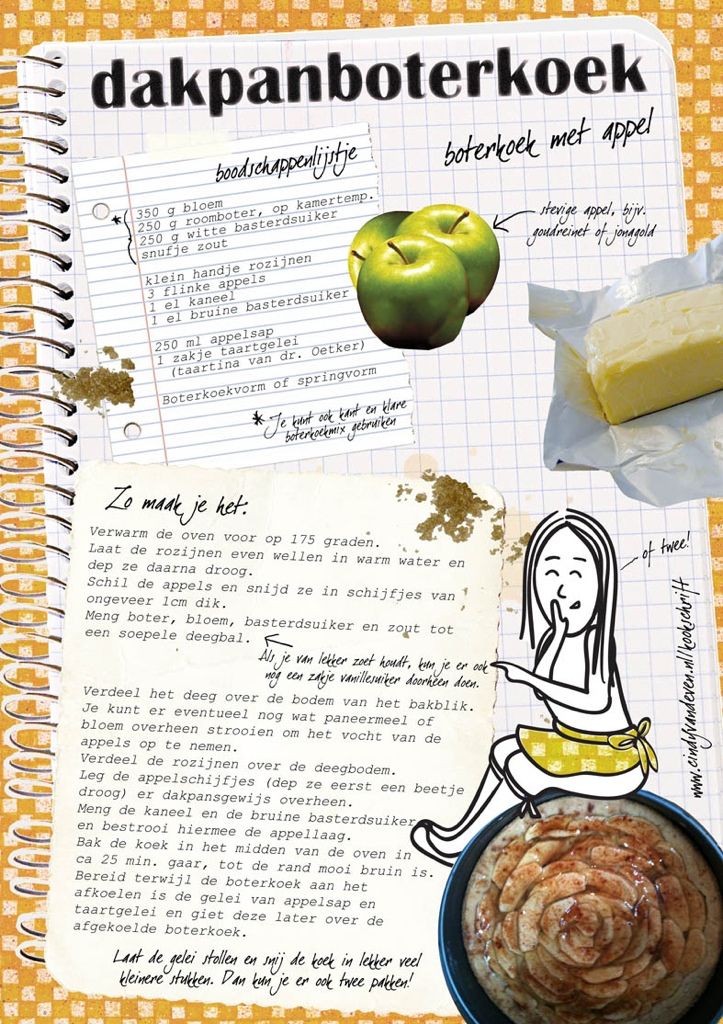 dakpanboterkoek
boterkoek met appel
boodschappenlijstje
* 350 g bloem
250 g roomboter, op kamertemp.
250 g witte basterdsuiker
snufje zout
klein handje rozijnen
3 flinke appels
1 el kaneel
1 el bruine basterdsuiker
250 ml appelsap
1 zakje taartgelei
(taartina van dr. Oetker)
Boterkoekvorm of springvorm
* Je kunt ook kant en klare
boterkoekmix gebruiken
stevige appel, bijv.
goudreinet of jonagold
Zo maak je het:
Verwarm de oven voor op 175 graden.
Laat de rozijnen even wellen in warm water en
dep ze daarna droog.
Schil de appels en snijd ze in schijfjes van
ongeveer 1cm dik.
Meng boter, bloem, basterdsuiker en zout tot
een soepele deegbal.
Als je van lekker zoet houdt, kun je er ook
nog een zakje vanillesuiker doorheen doen.
Verdeel het deeg over de bodem van het bakblik.
Je kunt er eventueel nog wat paneermeel of
bloem overheen strooien om het vocht van de
appels op te nemen.
Verdeel de rozijnen over de deegbodem.
Leg de appelschijfjes (dep ze eerst een beetje
droog) er dakpansgewijs overheen.
Meng de kaneel en de bruine basterdsuiker
en bestrooi hiermee de appellaag.
Bak de koek in het midden van de oven in
ca 25 min. gaar, tot de rand mooi bruin is.
Bereid terwijl de boterkoek aan het
afkoelen is de gelei van appelsap en
taartgelei en giet deze later over de
afgekoelde boterkoek.
Laat de gelei stollen en snij de koek in lekker veel
kleinere stukken. Dan kun je er ook twee pakken!
of twee!
www.cindyvandeven.nl/kookschrift